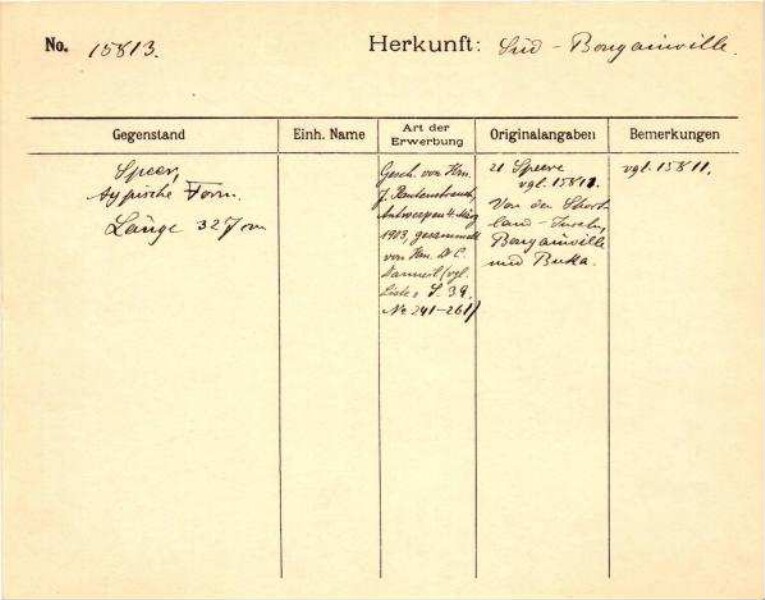 No. 15813.
Herkunft: Süd - Bougainville.
Gegenstand
Einh. Name
Art der Erwerbung
Originalangaben
Bemerkungen
Speer,
typische Form.
Länge 327 cm
Gesch. von Hrn.
J. Rautenstrauch,
Antwerpen 4. März
1903, gesammelt
von Hrn. D C.
(vgl.
Liste S. 39.
Nr 241-261)
21 Speere
vgl. 15811.
Von den Short
land - Inseln,
Bougainville
und Buka.
vgl. 15811.